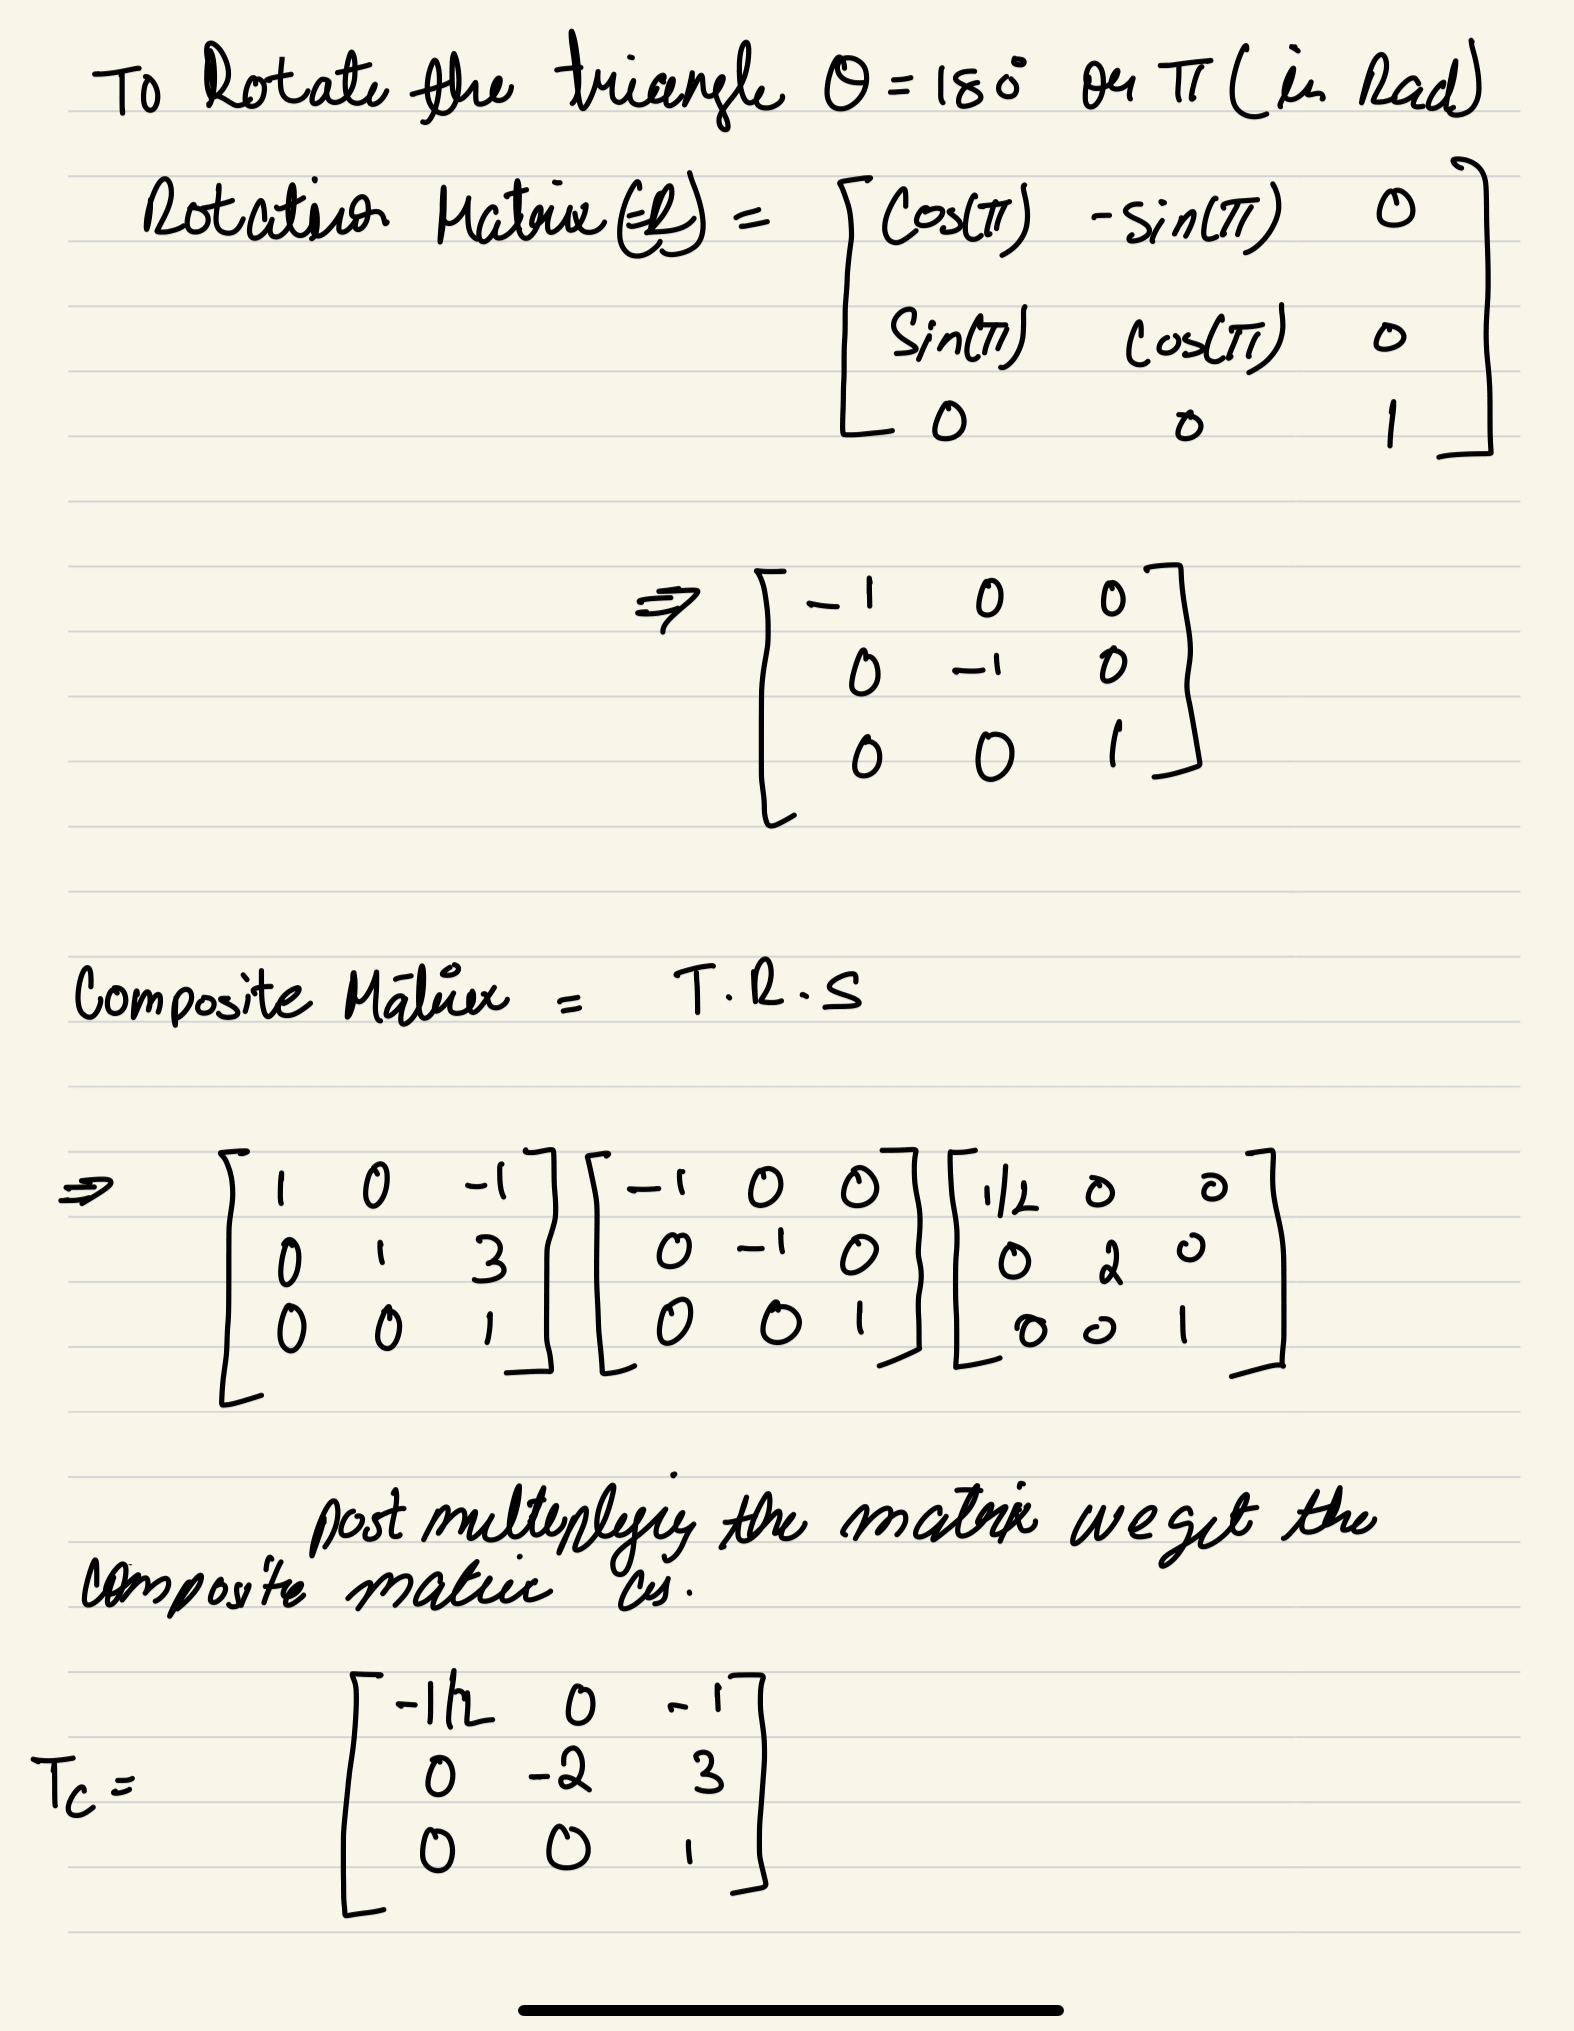 To Rotate the triangle θ = 180° or π (in Rad)
Rotation Matrix (R) = [ Cos(π) -Sin(π) 0
Sin(π) Cos(π) 0
0 0 1 ]
⇒ [ -1 0 0
0 -1 0
0 0 1 ]
Composite Matrix = T.R.S
⇒ [ 1 0 -1 ] [ -1 0 0 ] [ 1/2 0 0 ]
[ 0 1 3 ] [ 0 -1 0 ] [ 0 2 0 ]
[ 0 0 1 ] [ 0 0 1 ] [ 0 0 1 ]
post multiplying the matrix we get the
composite matrix as.
[ -1/2 0 -1
Tc = 0 -2 3
0 0 1 ]